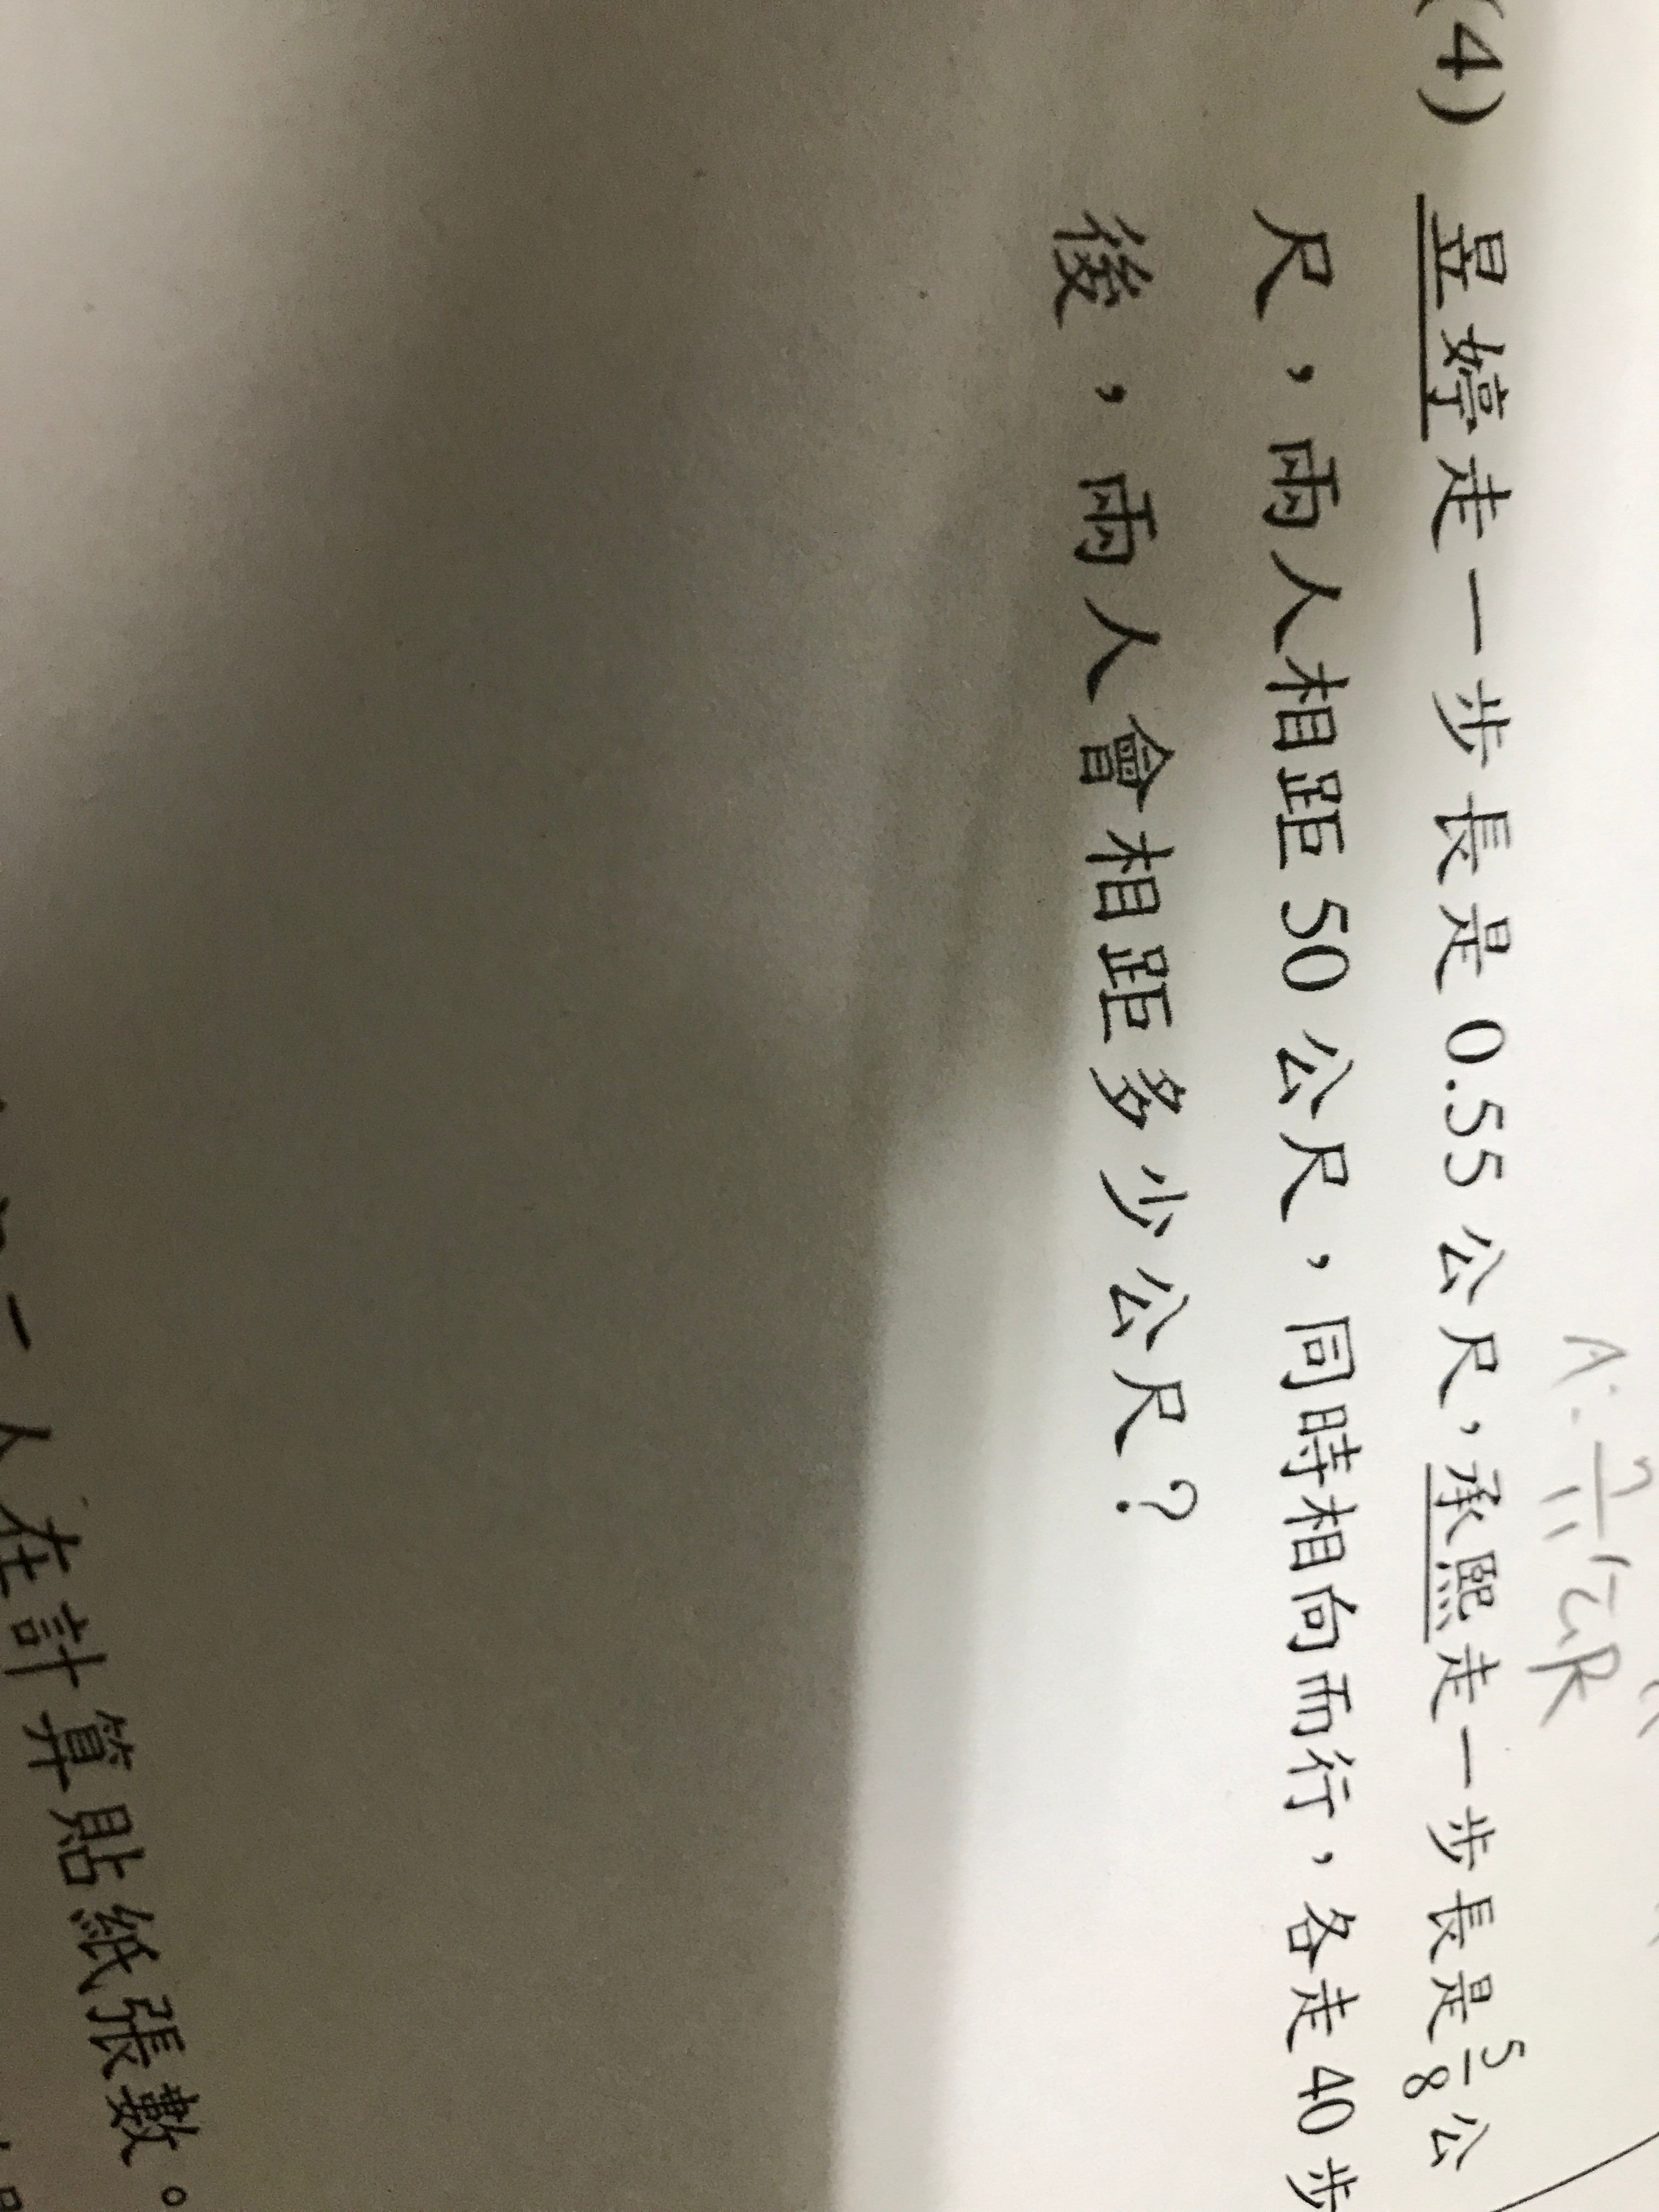 A: 7/11公尺
(4) 昱婷走一步長是 0.55 公尺,承熙走一步長是 5/8 公
尺,兩人相距 50 公尺,同時相向而行,各走 40 步
後,兩人會相距多少公尺?
一人在計算貼紙張數。